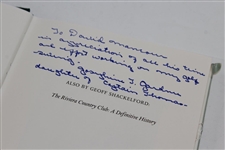 To David
in appreciation of all his time
and effort working on my golf
Josephine T. Gardner
daughter of Captain Thomas.
ALSO BY GEOFF SHACKELFORD:
The Riviera Country Club: A Definitive History